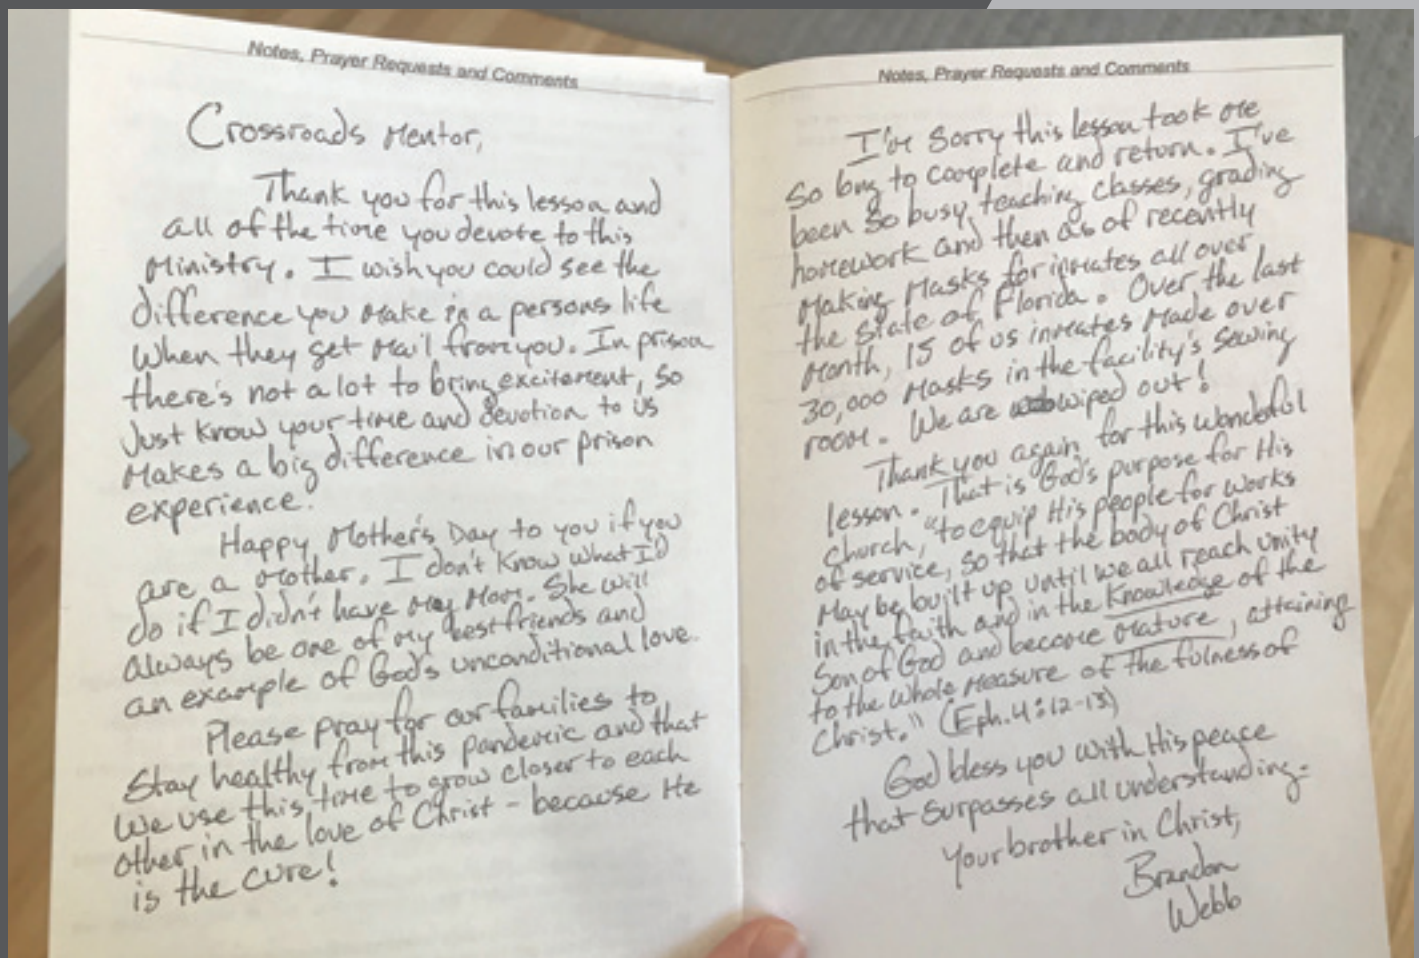 Notes, Prayer Requests and Comments
Crossroads Mentor,
Thank you for this lesson and
all of the time you devote to this
Ministry. I wish you could see the
difference you make in a persons life
when they get mail from you. In prison
there's not a lot to bring excitement, so
Just Know your time and devotion to us
Makes a big difference in our prison
experience!
Happy Mother's Day to you if you
are a mother. I don't know what I'd
do if I didn't have my Mom. She will
always be one of my best friends and
an example of God's unconditional love.
Please pray for our families to
Stay healthy from this pandemic and that
We use this time to grow closer to each
other in the love of Christ - because He
is the cure!
Notes, Prayer Requests and Comments
I'm Sorry this lesson took me
So long to complete and return. I've
been so busy, teaching classes, grading
homework and then as of recently
Making Masks for inmates all over
the State of Florida. Over the last
Month, 15 of us inmates Made over
30,000 Masks in the facility's sewing
room. We are wiped out!
Thank you again for this wonderful
lesson. That is God's purpose for His
church, "to equip His people for works
of service, so that the body of Christ
May be built up, until we all reach unity
in the faith and in the Knowledge of the
Son of God and become Mature, attaining
to the whole Measure of the fulness of
Christ." (Eph. 4:12-13)
God bless you with His peace
that surpasses all understanding.
Your brother in Christ,
Brandon
Webb